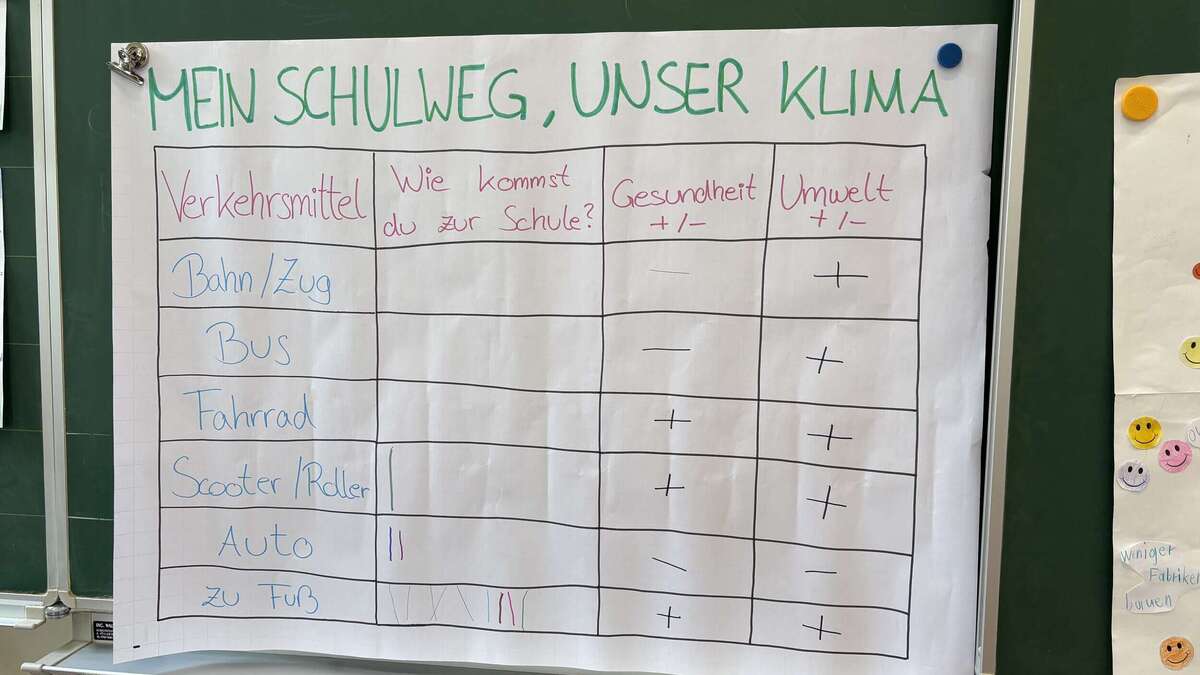 MEIN SCHULWEG, UNSER KLIMA
Verkehrsmittel
Wie kommst
du zur Schule?
Gesundheit
+/-
Umwelt
+/-
Bahn/Zug
-
+
Bus
-
+
Fahrrad
+
+
Scooter/Roller
+
+
Auto
-
-
zu Fuß
+
+
Winiger
Fabriken
bauen